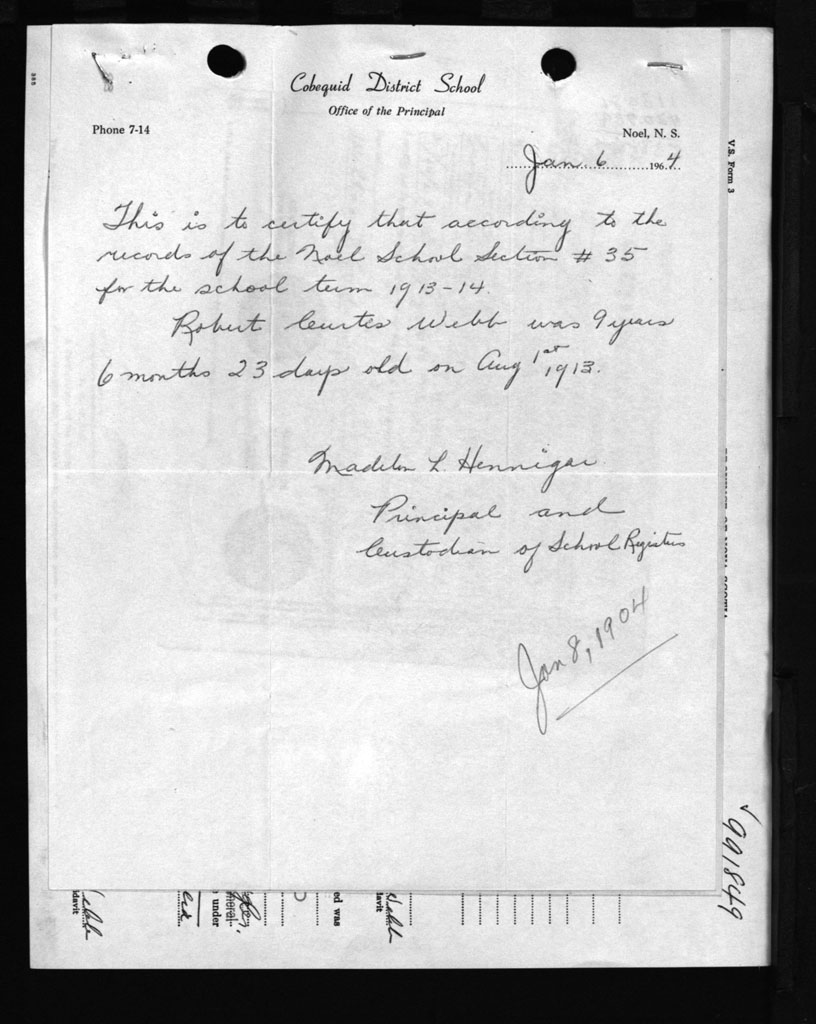 Cobequid District School
Office of the Principal
Phone 7-14
Noel, N. S.
Jan. 6 1964
V.S. Form 3
This is to certify that according to the
records of the Noel School Section # 35
for the school term 1913-14.
Robert Curtes Webb was 9 years
6 months 23 days old on Aug 1st 1913.
Madelon L. Hennigar
Principal and
Custodian of School Registers
Jan 8, 1904
991849
Webb
davit
under
moral
ed was
Webb
davit